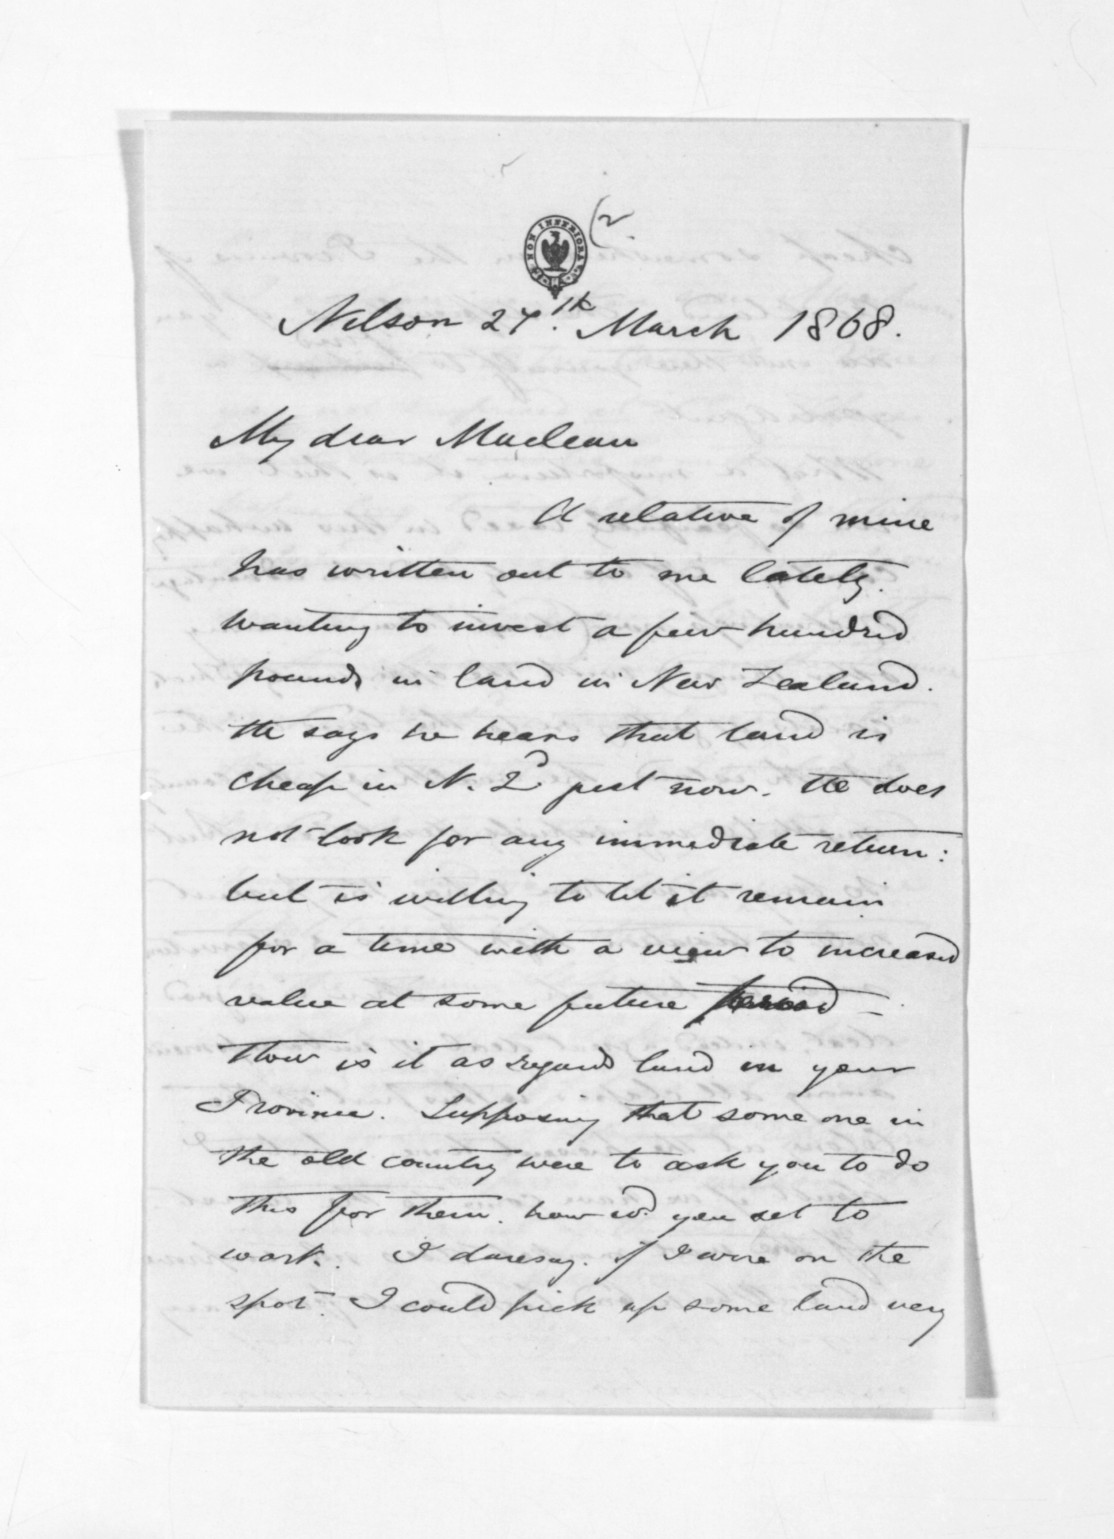 (2
NON INFERIORA
Nelson 27th. March 1868.
My dear Maclean
A relative of mine
has written out to me lately.
wanting to invest a few hundred
pounds in land in New Zealand.
He says he hears that land is
cheap in N. Zd just now. He does
not look for any immediate return:
but is willing to let it remain
for a time with a view to increased
value at some future period —
How is it as regards land in your
Province. Supposing that some one in
the old country were to ask you to do
this for them. how wd. you set to
work. I daresay. if I were on the
spot. I could pick up some land very